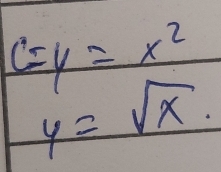 C=y = x²
y = √x.